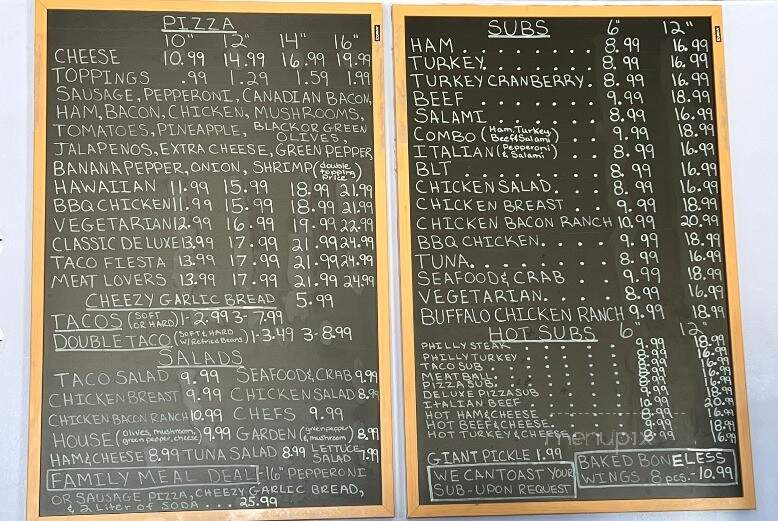 PIZZA
10" 12" 14" 16"
CHEESE 10.99 14.99 16.99 19.99
TOPPINGS .99 1.29 1.59 1.99
SAUSAGE, PEPPERONI, CANADIAN BACON,
HAM, BACON, CHICKEN, MUSHROOMS,
TOMATOES, PINEAPPLE, BLACK OR GREEN OLIVES,
JALAPENOS, EXTRA CHEESE, GREEN PEPPER
BANANA PEPPER, ONION, SHRIMP (double topping price)
HAWAIIAN 11.99 15.99 18.99 21.99
BBQ CHICKEN 11.99 15.99 18.99 21.99
VEGETARIAN 12.99 16.99 19.99 22.99
CLASSIC DELUXE 13.99 17.99 21.99 24.99
TACO FIESTA 13.99 17.99 21.99 24.99
MEAT LOVERS 13.99 17.99 21.99 24.99
CHEEZY GARLIC BREAD 5.99
TACOS (SOFT OR HARD) 1-2.99 3-7.99
DOUBLE TACO (SOFT & HARD W/Refried Beans) 1-3.49 3-8.99
SALADS
TACO SALAD 9.99 SEAFOOD & CRAB 9.99
CHICKEN BREAST 9.99 CHICKEN SALAD 8.99
CHICKEN BACON RANCH 10.99 CHEFS 9.99
HOUSE (olives, mushroom, green pepper, cheese) 9.99 GARDEN (green pepper & mushroom) 8.99
HAM & CHEESE 8.99 TUNA SALAD 8.99 LETTUCE SALAD 7.99
FAMILY MEAL DEAL - 16" PEPPERONI
OR SAUSAGE PIZZA, CHEEZY GARLIC BREAD,
& 2 Liter of SODA . . . 25.99
SUBS 6" 12"
HAM . . . . . . . 8.99 16.99
TURKEY. . . . . . 8.99 16.99
TURKEY CRANBERRY . 8.99 16.99
BEEF . . . . . . . 9.99 18.99
SALAMI . . . . . . 8.99 16.99
COMBO (Ham, Turkey, Beef & Salami) 9.99 18.99
ITALIAN (Pepperoni & Salami) 8.99 16.99
BLT . . . . . . . 8.99 16.99
CHICKEN SALAD. . . . 8.99 16.99
CHICKEN BREAST . . . 9.99 18.99
CHICKEN BACON RANCH 10.99 20.99
BBQ CHICKEN. . . . . 9.99 18.99
TUNA. . . . . . . 8.99 16.99
SEAFOOD & CRAB . . . 9.99 18.99
VEGETARIAN. . . . . 8.99 16.99
BUFFALO CHICKEN RANCH 9.99 18.99
HOT SUBS 6" 12"
PHILLY STEAK 9.99 18.99
PHILLY TURKEY
TACO SUB
MEATBALL
PIZZA SUB
DELUXE PIZZA SUB
ITALIAN BEEF
HOT HAM & CHEESE
HOT BEEF & CHEESE
HOT TURKEY & CHEESE 8.99 16.99
GIANT PICKLE 1.99
WE CAN TOAST YOUR
SUB - UPON REQUEST
BAKED BONELESS
WINGS 8 pcs. - 10.99
menupix